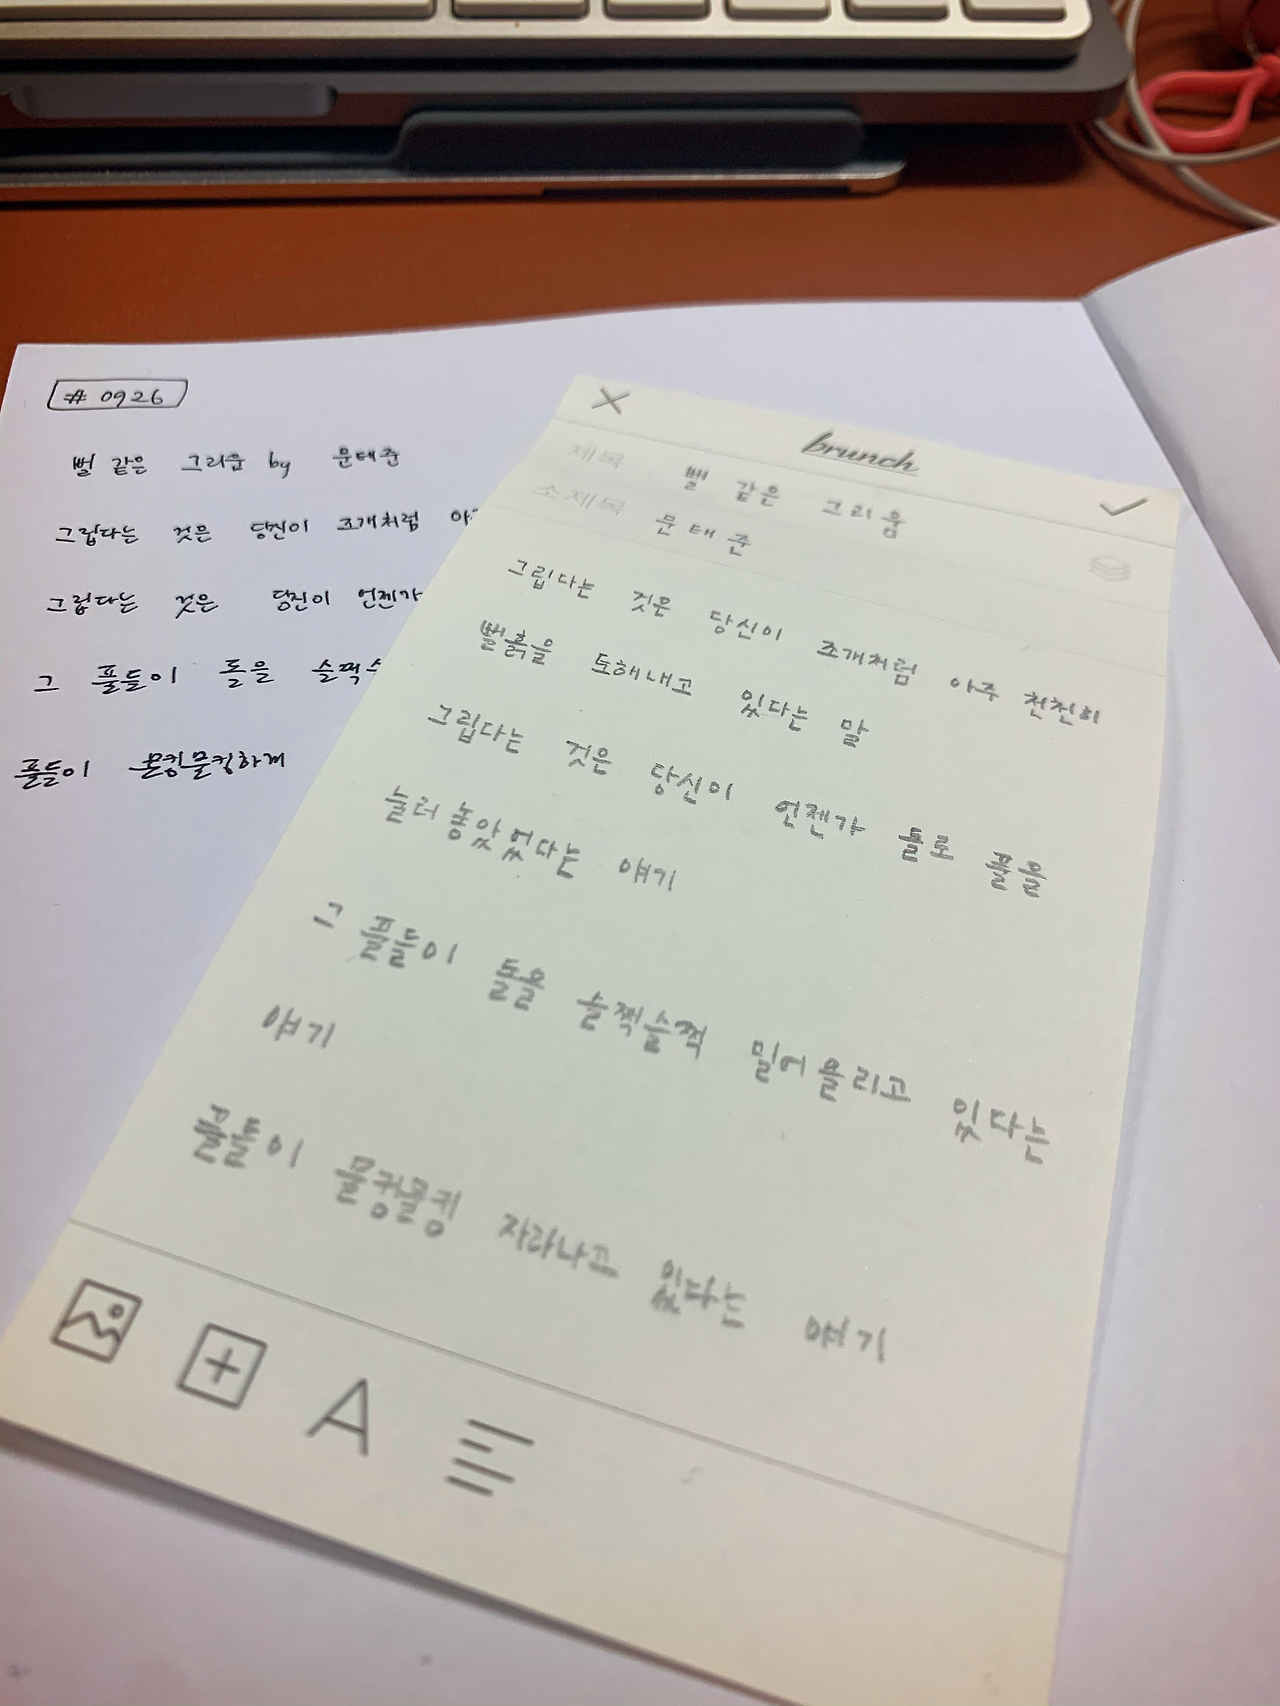 # 0926
뻘 같은 그리움 by 문태준
그립다는 것은 당신이 조개처럼
그립다는 것은 당신이 언젠가
그 풀들이 돌을
풀들이 물컹물컹하게
brunch
제목 뻘 같은 그리움
소제목 문태준
그립다는 것은 당신이 조개처럼 아주 천천히
뻘흙을 토해내고 있다는 말
그립다는 것은 당신이 언젠가 돌로 풀을
눌러놓았었다는 얘기
그 풀들이 돌을 슬쩍슬쩍 밀어올리고 있다는
얘기
풀들이 물컹물컹 자라나고 있다는 얘기
A